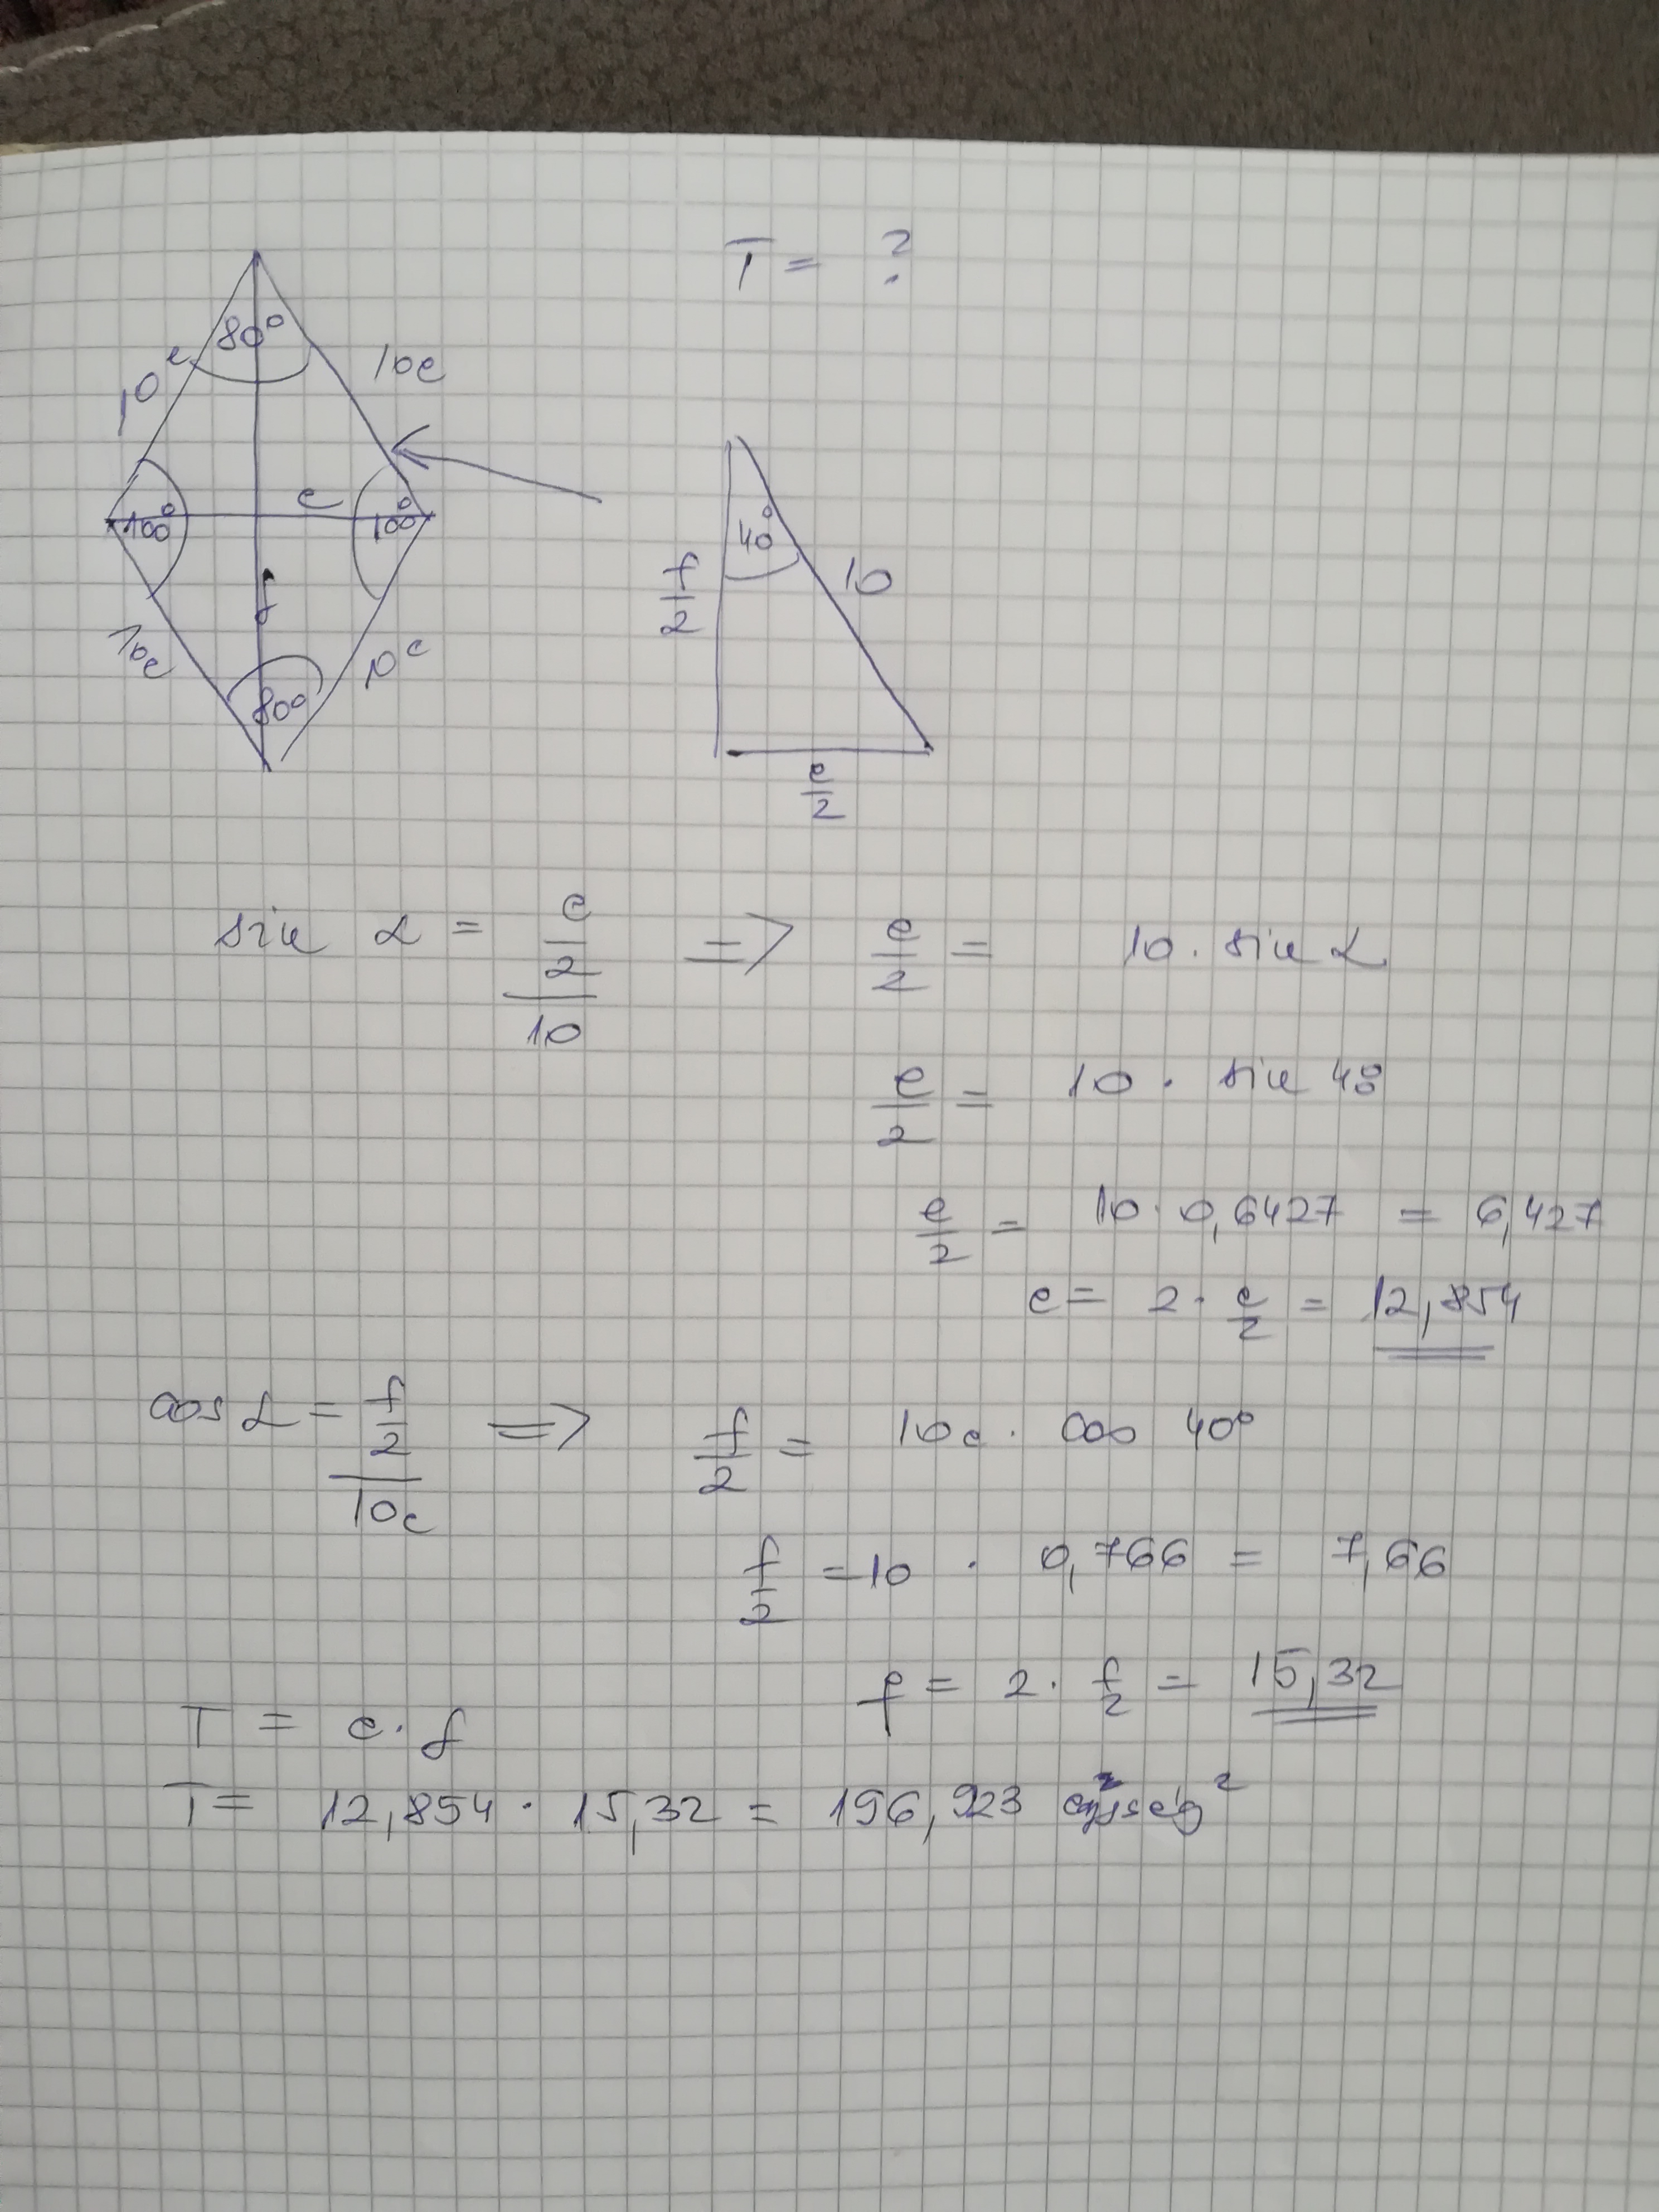 T = ?
80°
10e
10e
100°
e
100°
f
10e
10e
80°
40°
f/2
10
e/2
sin α = (e/2)/10 => e/2 = 10 · sin α
e/2 = 10 · sin 40
e/2 = 10 · 0,6427 = 6,427
e = 2 · e/2 = 12,854
cos α = (f/2)/10e => f/2 = 10e · cos 40°
f/2 = 10 · 0,766 = 7,66
f = 2 · f/2 = 15,32
T = e · f
T = 12,854 · 15,32 = 196,923 egység²